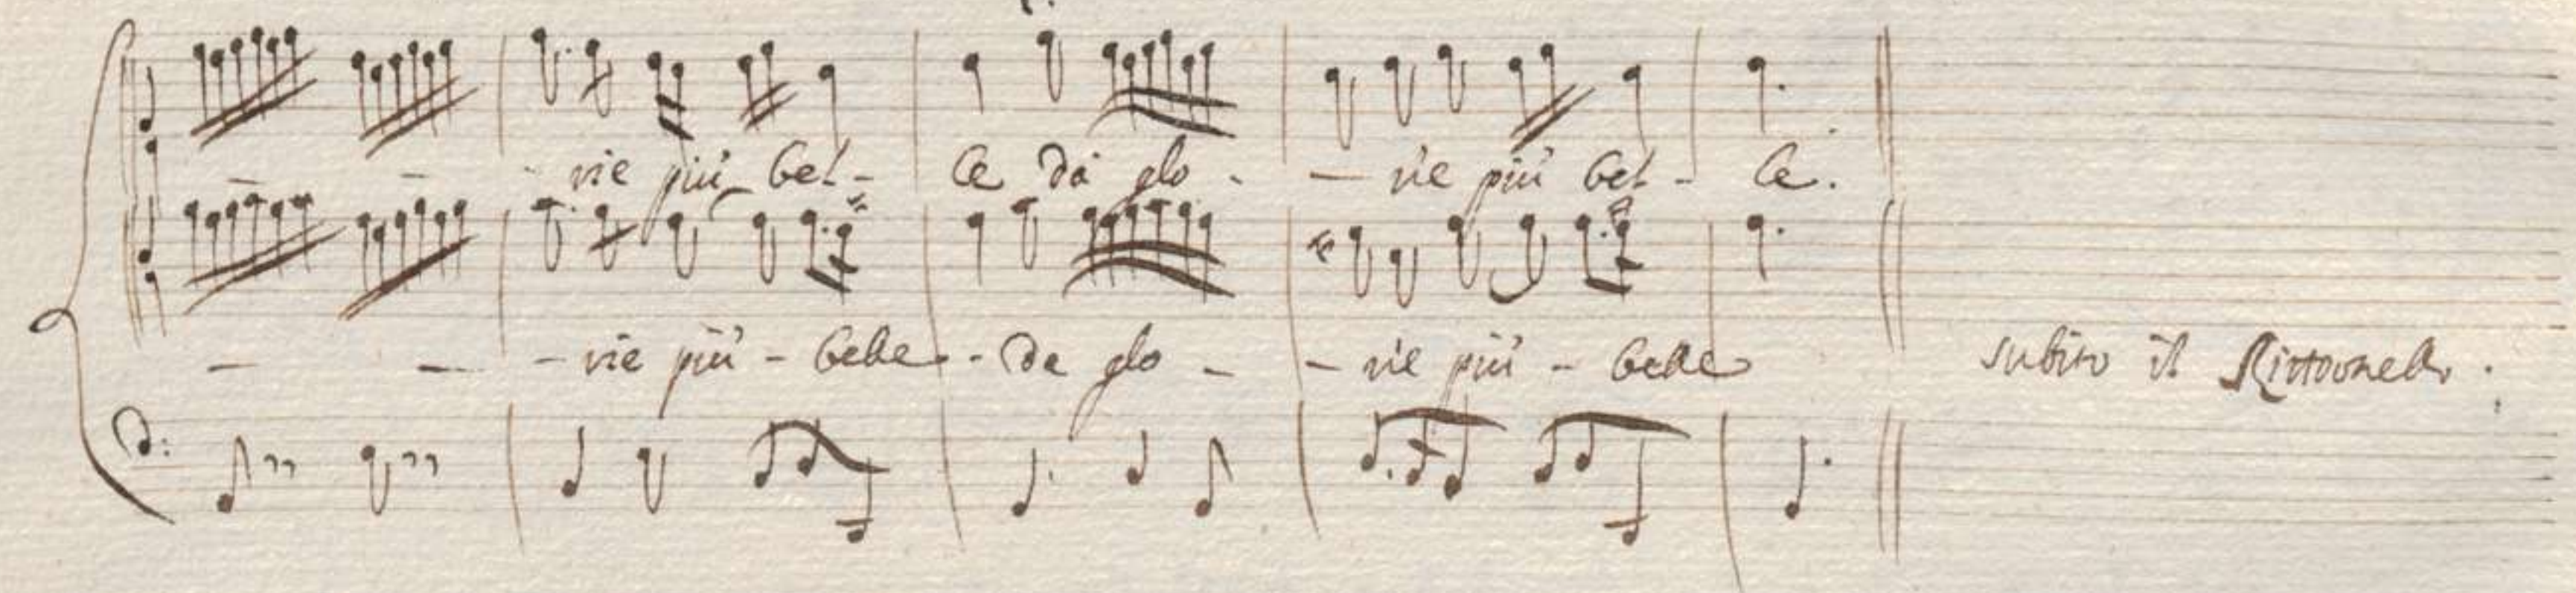 - - - rie più bel - le dà glo - - rie più bel - le.
- - - rie più - belle - da glo - - rie più - belle subito il Rittornello.